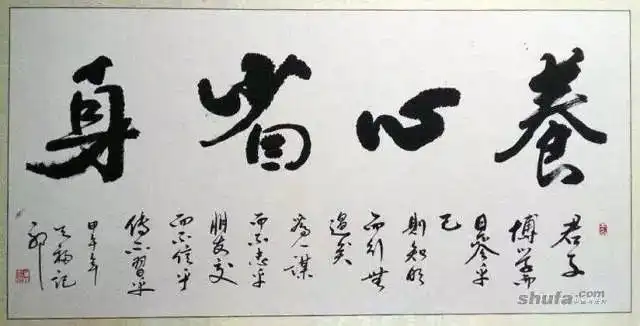 養心省身
君子
博学而
日參乎
己
則知明
而行無
過矣
為人謀
而不忠乎
朋友交
而不信乎
傳不習乎
甲午年
記
shufa.com